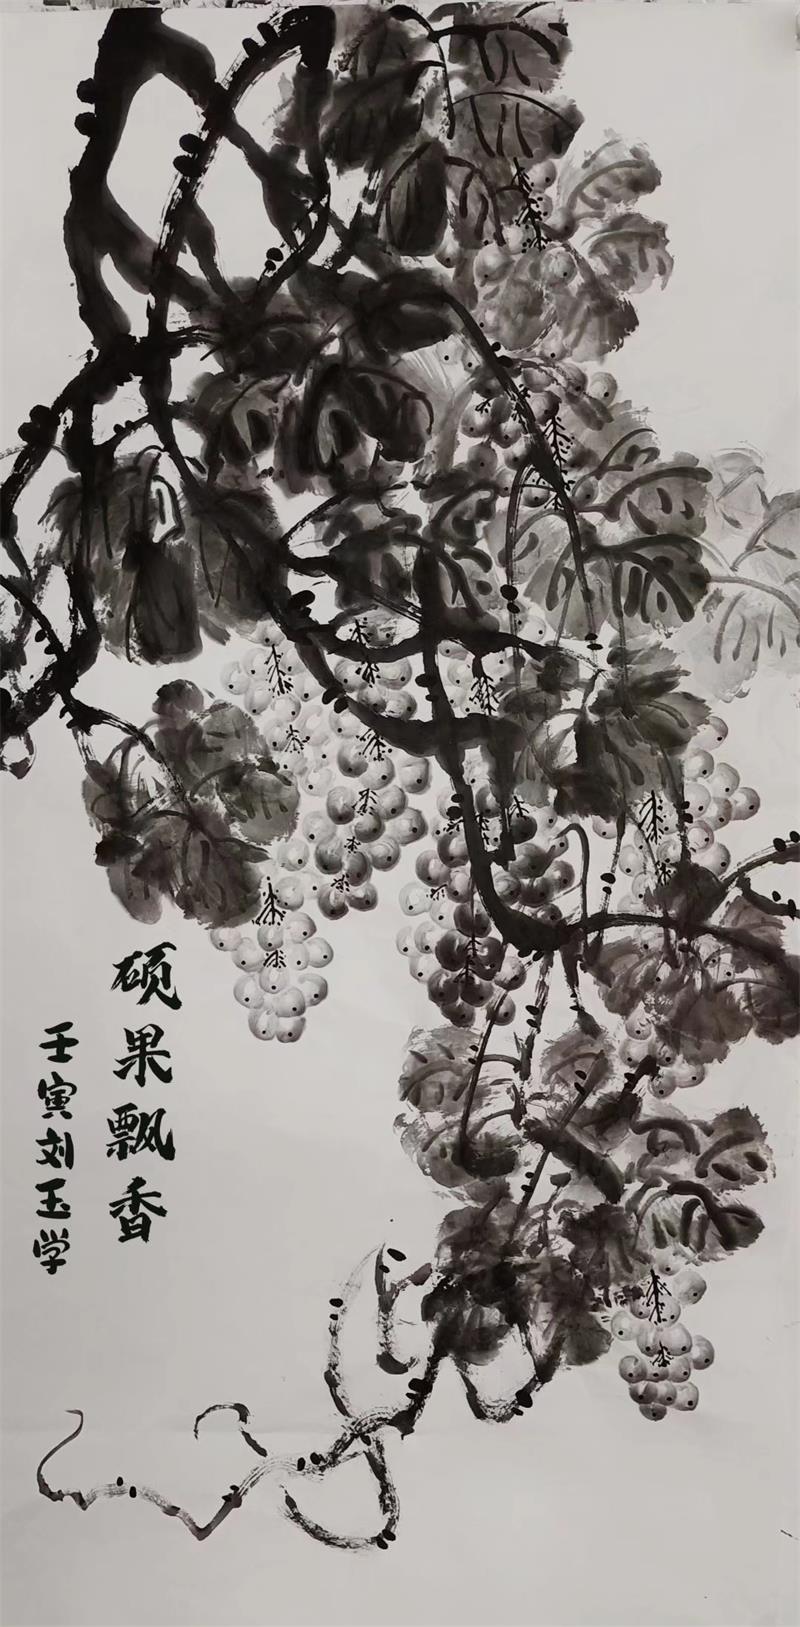 硕果飘香
壬寅刘玉学